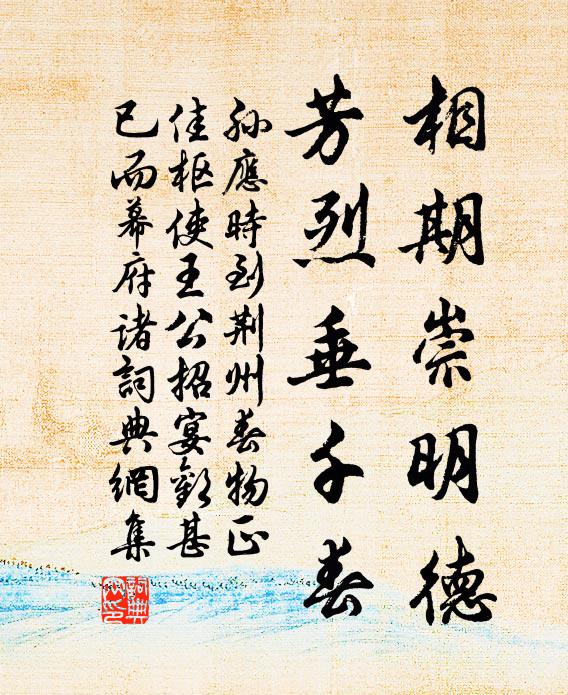 相期崇明德
芳烈垂千春
孙應時到荆州春物正
佳枢使王公招宴歡甚
已而幕府诸詞典網集